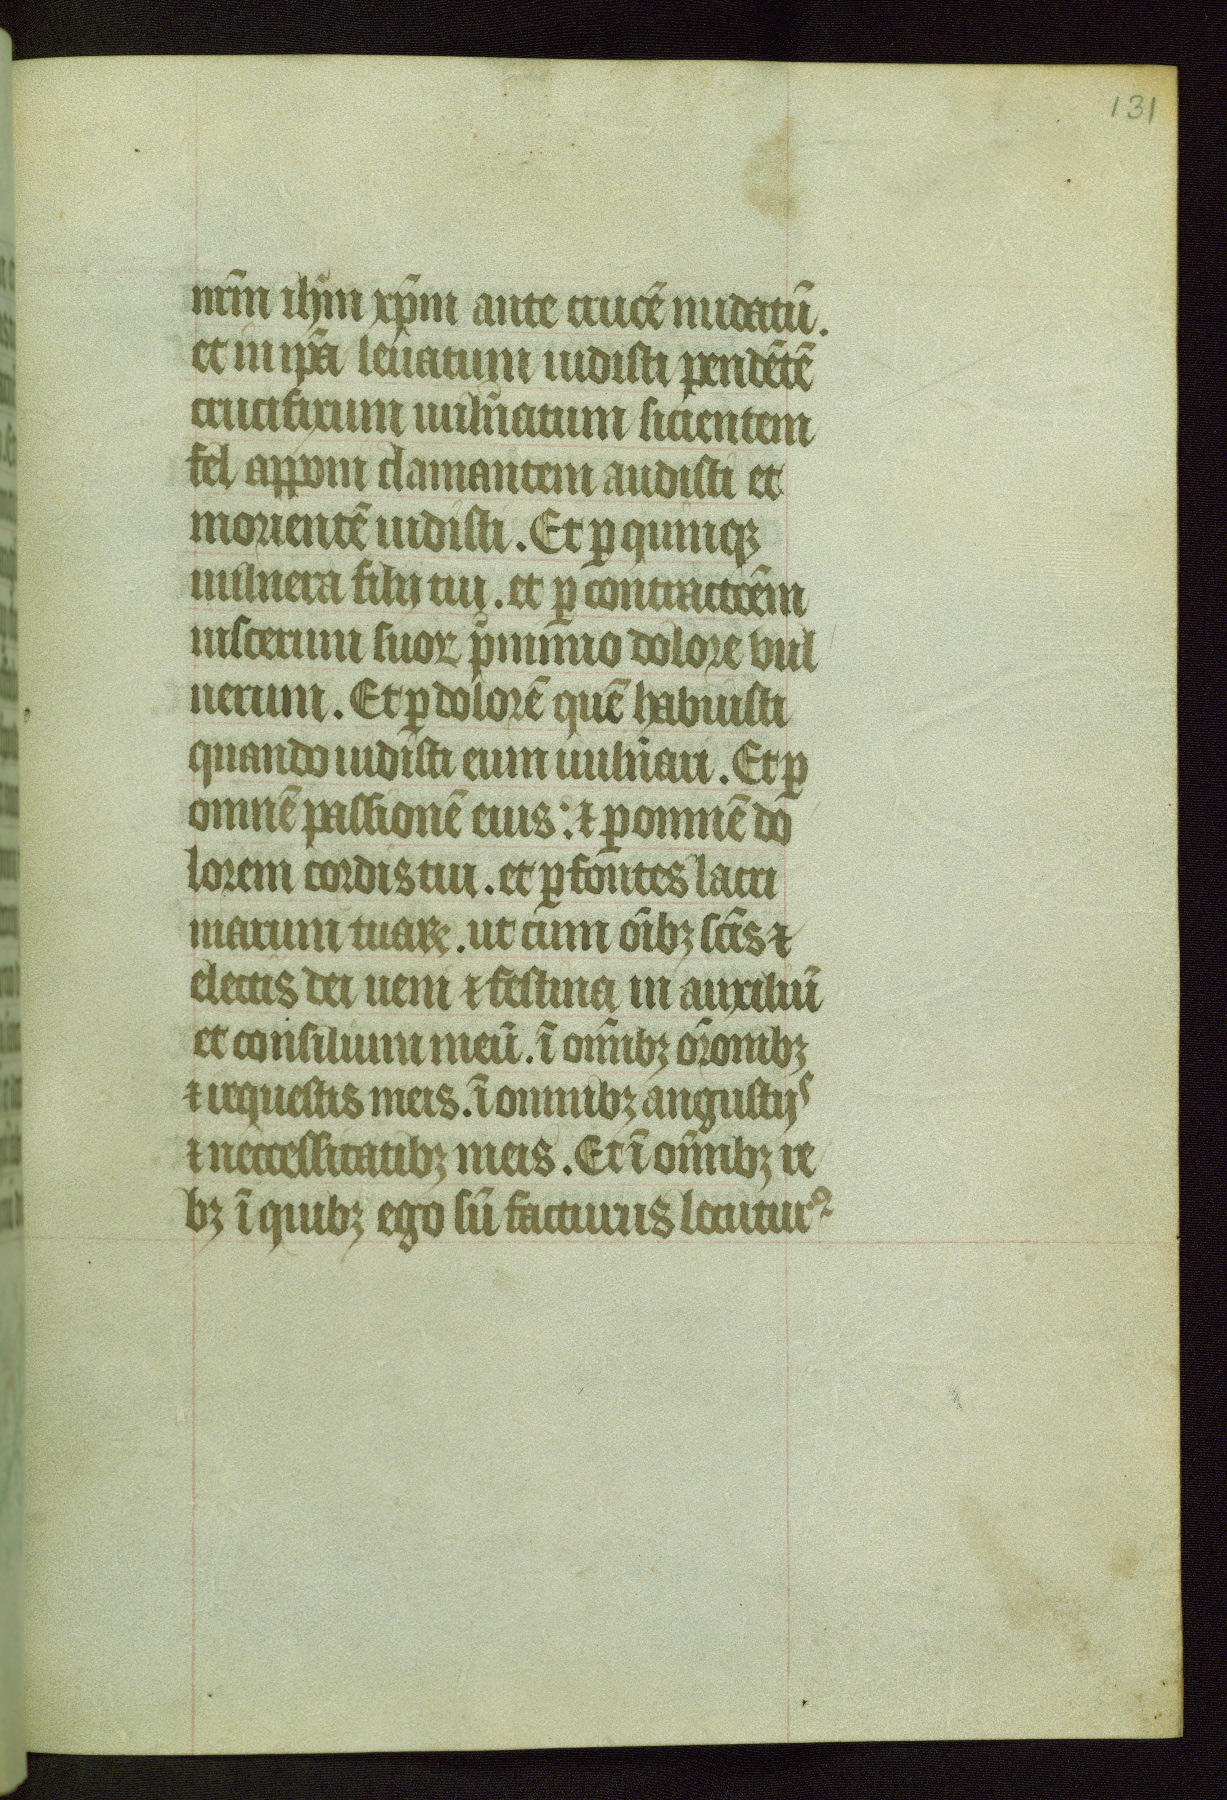 131
nrm̄ ihm̄ xp̄m ante crucē nudatū.
et in ip̄a leuatum uidisti pendētē
crucifixum uuln̄atum sicientem
fel appoñi clamantem audisti et
morientē uidisti. Et ꝑ quinqꝫ
uulnera filij tui. et ꝑ contractōēm
uiscerum suoꝝ p̄ nimio dolore vul
nerum. Et ꝑ dolorē quē habuisti
quando uidisti eum uuln̄ari. Et ꝑ
omnē passionē eius: ⁊ ꝑ omnē do
lorem cordis tui. et ꝑ fontes lacri
marum tuaꝝ. ut cum oībꝫ scīs ⁊
electis dei ueni ⁊ festina in auxiliū
et consilium meū. ī om̄ibꝫ or̄onibꝫ
⁊ requestis meis. ī omnibꝫ angustijs
⁊ neccessitatibꝫ meis. Et ī om̄ibꝫ re
bꝫ ī quibꝫ ego sū facturus locuturꝰ